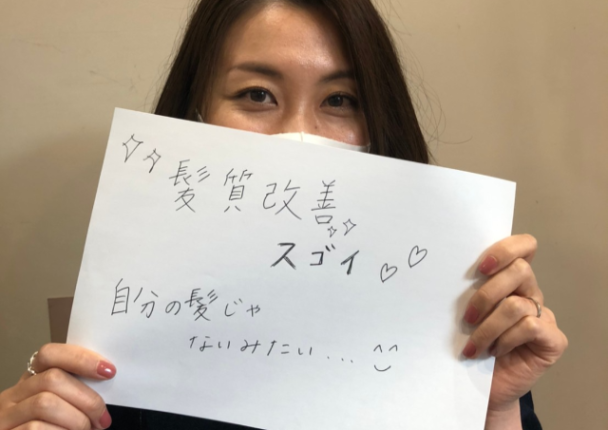 髪質改善
スゴイ♡♡
自分の髪じゃ
ないみたい... ^^